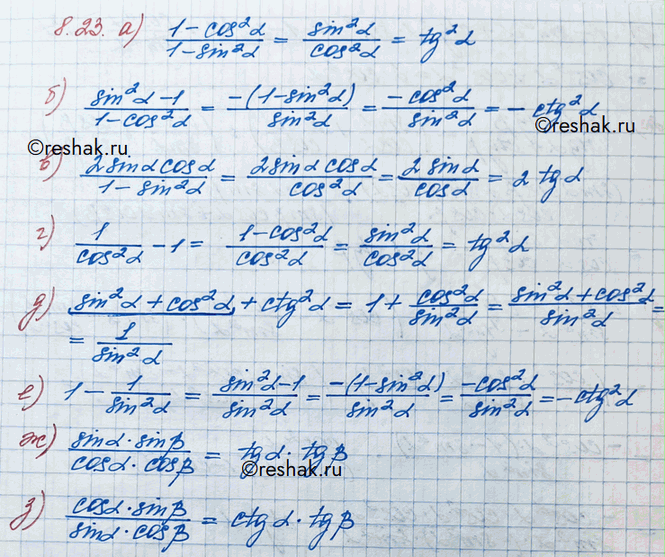 8.23. а) (1-cos²α)/(1-sin²α) = sin²α/cos²α = tg²α
б) (sin²α-1)/(1-cos²α) = -(1-sin²α)/sin²α = -cos²α/sin²α = -ctg²α
©reshak.ru
©reshak.ru
в) 2sinα cosα/(1-sin²α) = 2sinα cosα/cos²α = 2 sinα/cosα = 2 tgα
г) 1/cos²α - 1 = (1-cos²α)/cos²α = sin²α/cos²α = tg²α
д) sin²α + cos²α + ctg²α = 1 + cos²α/sin²α = (sin²α + cos²α)/sin²α =
= 1/sin²α
е) 1 - 1/sin²α = (sin²α-1)/sin²α = -(1-sin²α)/sin²α = -cos²α/sin²α = -ctg²α
ж) (sinα · sinβ)/(cosα · cosβ) = tgα · tgβ
©reshak.ru
з) (cosα · sinβ)/(sinα · cosβ) = ctgα · tgβ